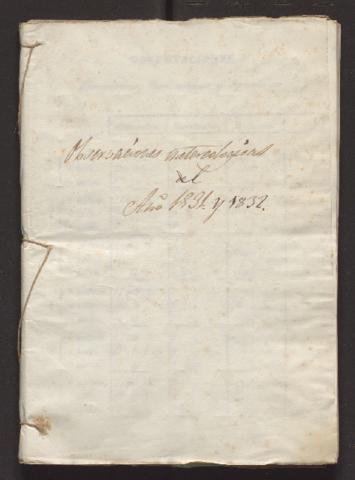 Observaciones meteorologicas
del
Año 1831. y 1832.